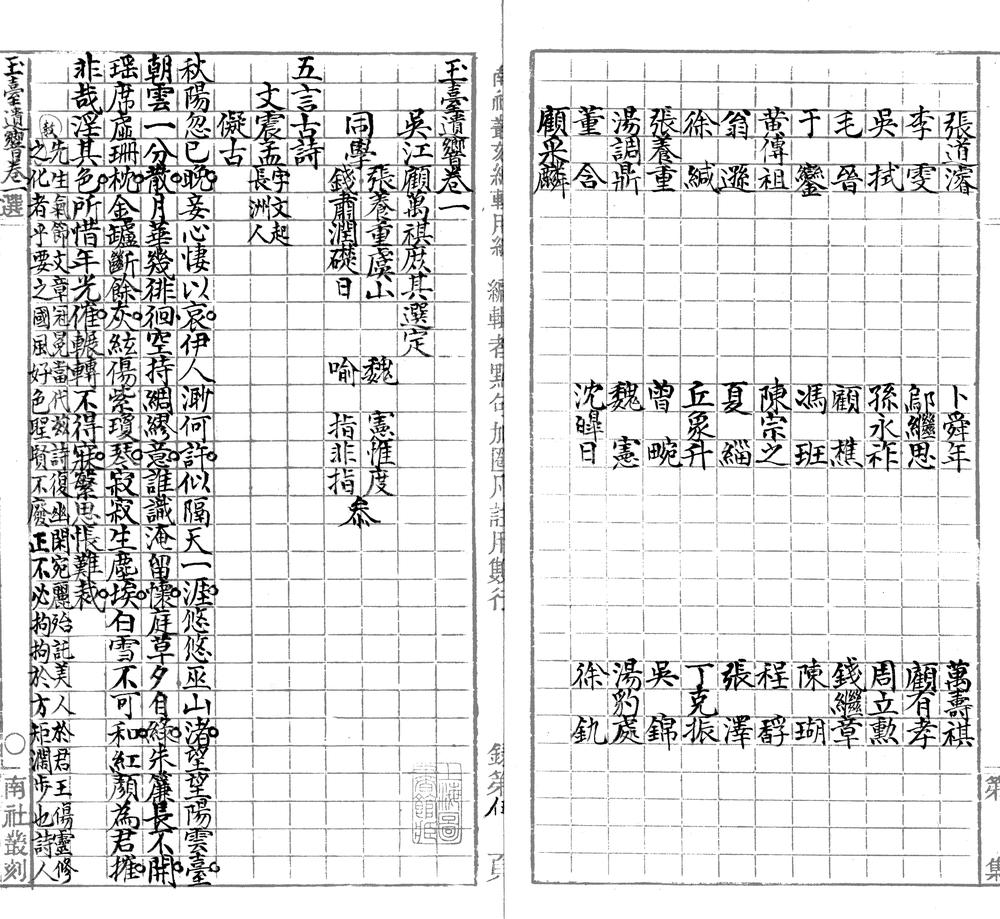 張道濬
李雯
吳拭
毛晉
于鑾
黃傅祖
翁遜
徐緘
張養重
湯調鼎
董含
顧采麟
卜舜年
鄔繼思
孫永祚
顧樵
馮班
陳宗之
夏緇
丘象升
曾畹
魏憲
沈皥日
萬壽祺
顧有孝
周立勳
錢繼章
陳瑚
程䎖
張澤
丁克振
吳錦
湯豹處
徐釚
玉臺遺響卷一
吳江顧萬祺庶其選定
同學
張養重虞山
錢肅潤礎日
魏憲惟度
喻指非指
叅
五言古詩
文震孟
字文起
長洲人
儗古
秋陽忽已晚妾心悽以哀伊人渺何許似隔天一涯悠悠巫山渚望望陽雲臺
朝雲一分散月華幾徘徊空持綢繆意誰識淹留懷庭草夕自綠朱簾長不開
瑶席虛珊枕金罏斷餘灰絃傷紫瓊琴寂寂生塵埃白雪不可和紅顏為君摧
非哉淫其色所惜年光催輾轉不得寐縈思悵難裁
先生氣節文章冠冕當代茲詩復幽閑宛麗殆託美人於君王傷靈修
之化者乎要之國風好色聖賢不廢正不必拘拘於方矩濶步也詩人
玉臺遺響卷一
選
南社叢刻